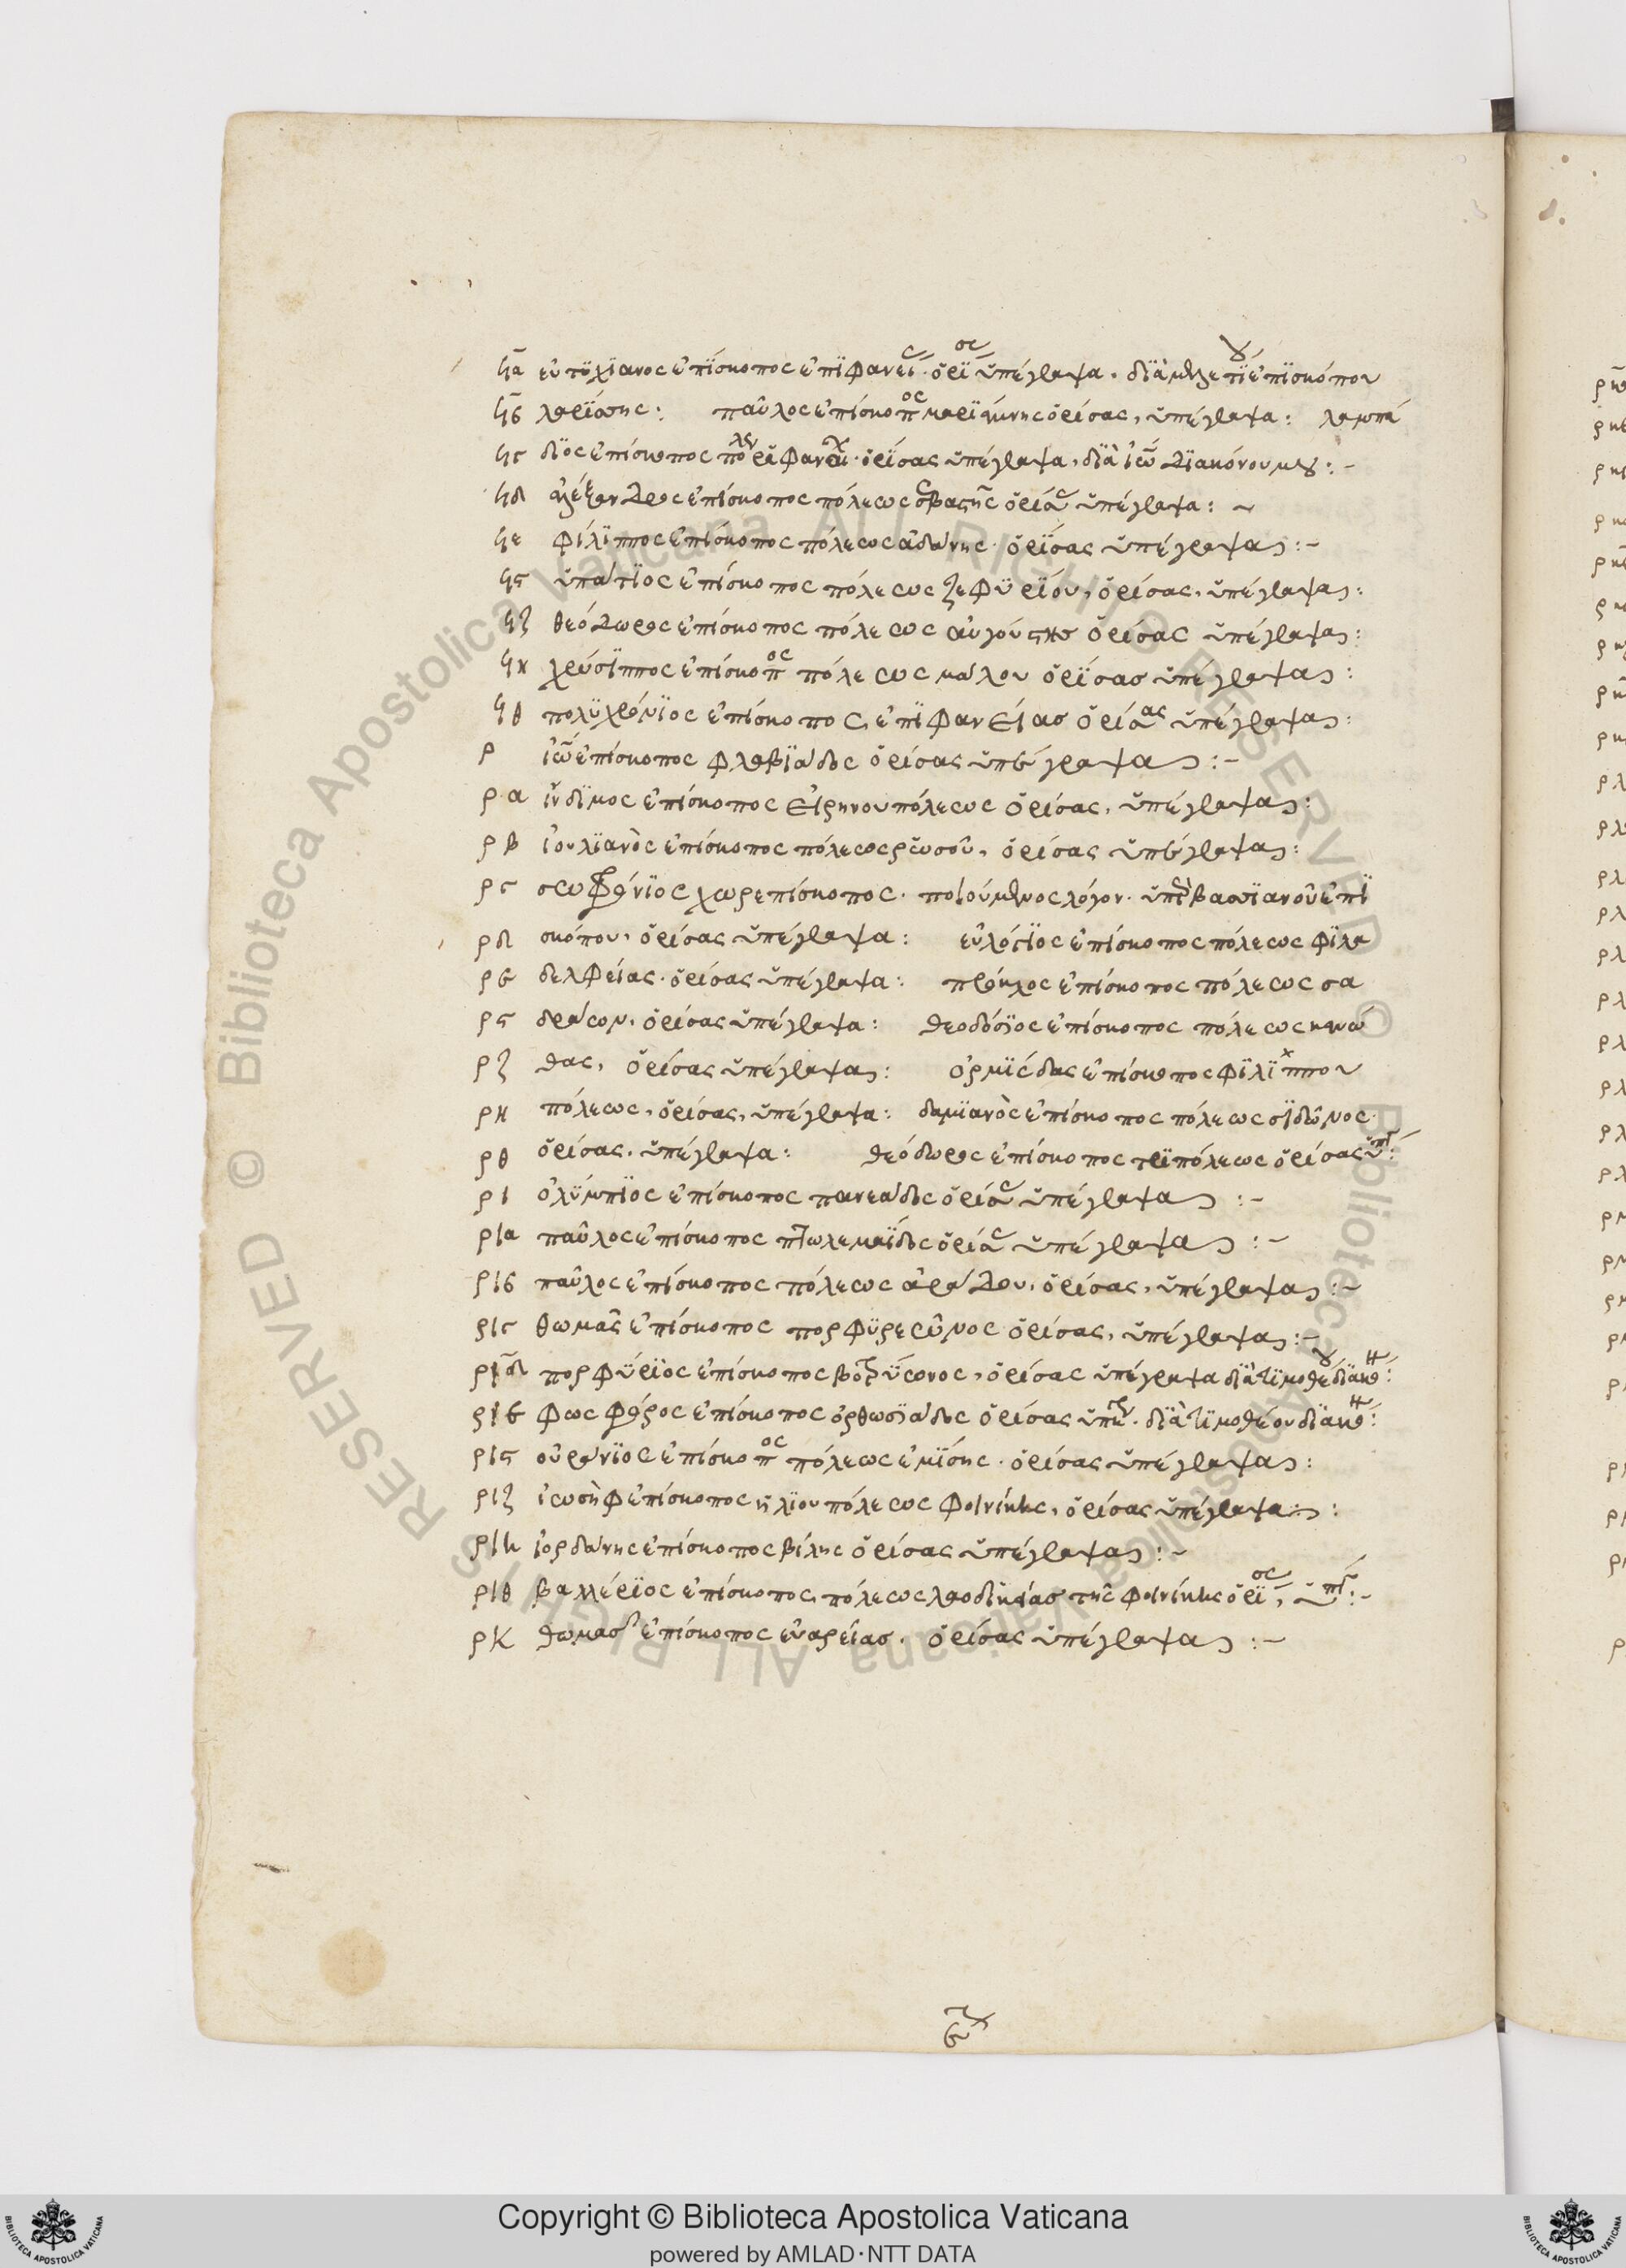 ϟα εὐτϋχιανος ἐπίσκοπος ἐπϊφανεί ὁρϊσας ὑπέγραψα, δϊὰ μελετϊου ἐπϊσκόπου
ϟβ λαρίσσης: παῦλος ἐπίσκοπος μαριάμνης ὁρίσας, ὑπέγραψα: λαμπά
ϟγ δϊος ἐπίσκοπος ὁρίσας ὑπέγραψα, δϊὰ ἰω διακόνου μου:-
ϟδ ἀλέξανδρος ἐπίσκοπος πόλεως σεβαστῆς ὁρίσας ὑπέγραψα: ~
ϟε φίλϊππος ἐπίσκοπος πόλεως ἀδάνης. ὁρίσας ὑπέγραψα:-
ϟς ὑπάτϊος ἐπίσκοπος πόλεως ζεφϋρϊου, ὁρίσας, ὑπέγραψα:
ϟζ θεόδωρος ἐπίσκοπος πόλεως αὐγούστησ ὁρίσας ὑπέγραψα:
ϟη χρύσϊππος ἐπίσκοπος πόλεως μάλου ὁρίσασ ὑπέγραψα:
ϟθ πολϋχρόνϊος ἐπίσκοπος, ἐπϊφανείασ ὁρίσας ὑπέγραψα:
ρ ἰω ἐπίσκοπος φλαβϊάδος ὁρίσας ὑπέγραψα:-
ρα ἴνδϊμος ἐπίσκοπος εἰρηνουπόλεως ὁρίσας, ὑπέγραψα:
ρβ ἰουλϊανὸς ἐπίσκοπος πόλεως ῥωσοῦ, ὁρίσας ὑπέγραψα:
ργ σωφρόνϊος χωρεπίσκοπος. ποιούμενος λόγον. ὑπὲρ βασσϊανοῦ ἐπϊ
ρδ σκόπου, ὁρίσας ὑπέγραψα: εὐλόγϊος ἐπίσκοπος πόλεως φϊλα
ρε δελφείας. ὁρίσας ὑπέγραψα: πρόκλος ἐπίσκοπος πόλεως σα
ρς δράσον. ὁρίσας ὑπέγραψα: θεοδόσϊος ἐπίσκοπος πόλεως κανώ
ρζ θας, ὁρίσας ὑπέγραψα: ὁρμϊσδας ἐπίσκοπος φϊλϊππου
ρη πόλεως, ὁρίσας, ὑπέγραψα: δαμϊανὸς ἐπίσκοπος πόλεως σϊδῶνος
ρθ ὁρίσας, ὑπέγραψα: θεόδωρος ἐπίσκοπος τρϊπόλεως ὁρίσας ὑπ:
ρι ὀλύμπϊος ἐπίσκοπος πανεάδος ὁρίσας ὑπέγραψα:-
ρια παῦλος ἐπίσκοπος πτωλεμαϊδος ὁρίσας ὑπέγραψα:-
ριβ παῦλος ἐπίσκοπος πόλεως ἀράδου, ὁρίσας, ὑπέγραψα:-
ριγ θωμᾶς ἐπίσκοπος πορφϋρεῶνος ὁρίσας, ὑπέγραψα:-
ριδ πορφϋρϊος ἐπίσκοπος βοτρϋωνος, ὁρίσας ὑπέγραψα δϊὰ τϊμοθέου δϊακο:
ριε φωσφόρος ἐπίσκοπος ὀρθωσϊάδος ὁρίσας ὑπε. δϊὰ τϊμοθέου δϊακο:
ρις οὐράνϊος ἐπίσκοπος πόλεως ἐμϊσης. ὁρίσας ὑπέγραψα:
ριζ ἰωσὴφ ἐπίσκοπος ἡλϊουπόλεως φοινίκης, ὁρίσας ὑπέγραψα:
ριη ἰορδάνης ἐπίσκοπος βίλης ὁρίσας ὑπέγραψα:-
ριθ βαλλέρϊος ἐπίσκοπος, πόλεως λαοδϊκείασ τῆς φοινίκης ὁρϊσας, ὑπ:-
ρκ θωμασ ἐπίσκοπος εὐαρείασ. ὁρίσας ὑπέγραψα:-
RESERVED © Biblioteca Apostolica Vaticana ALL RIGHTS RESERVED © Biblioteca Apostolica Vaticana ALL RIGHTS
Copyright © Biblioteca Apostolica Vaticana
powered by AMLAD·NTT DATA